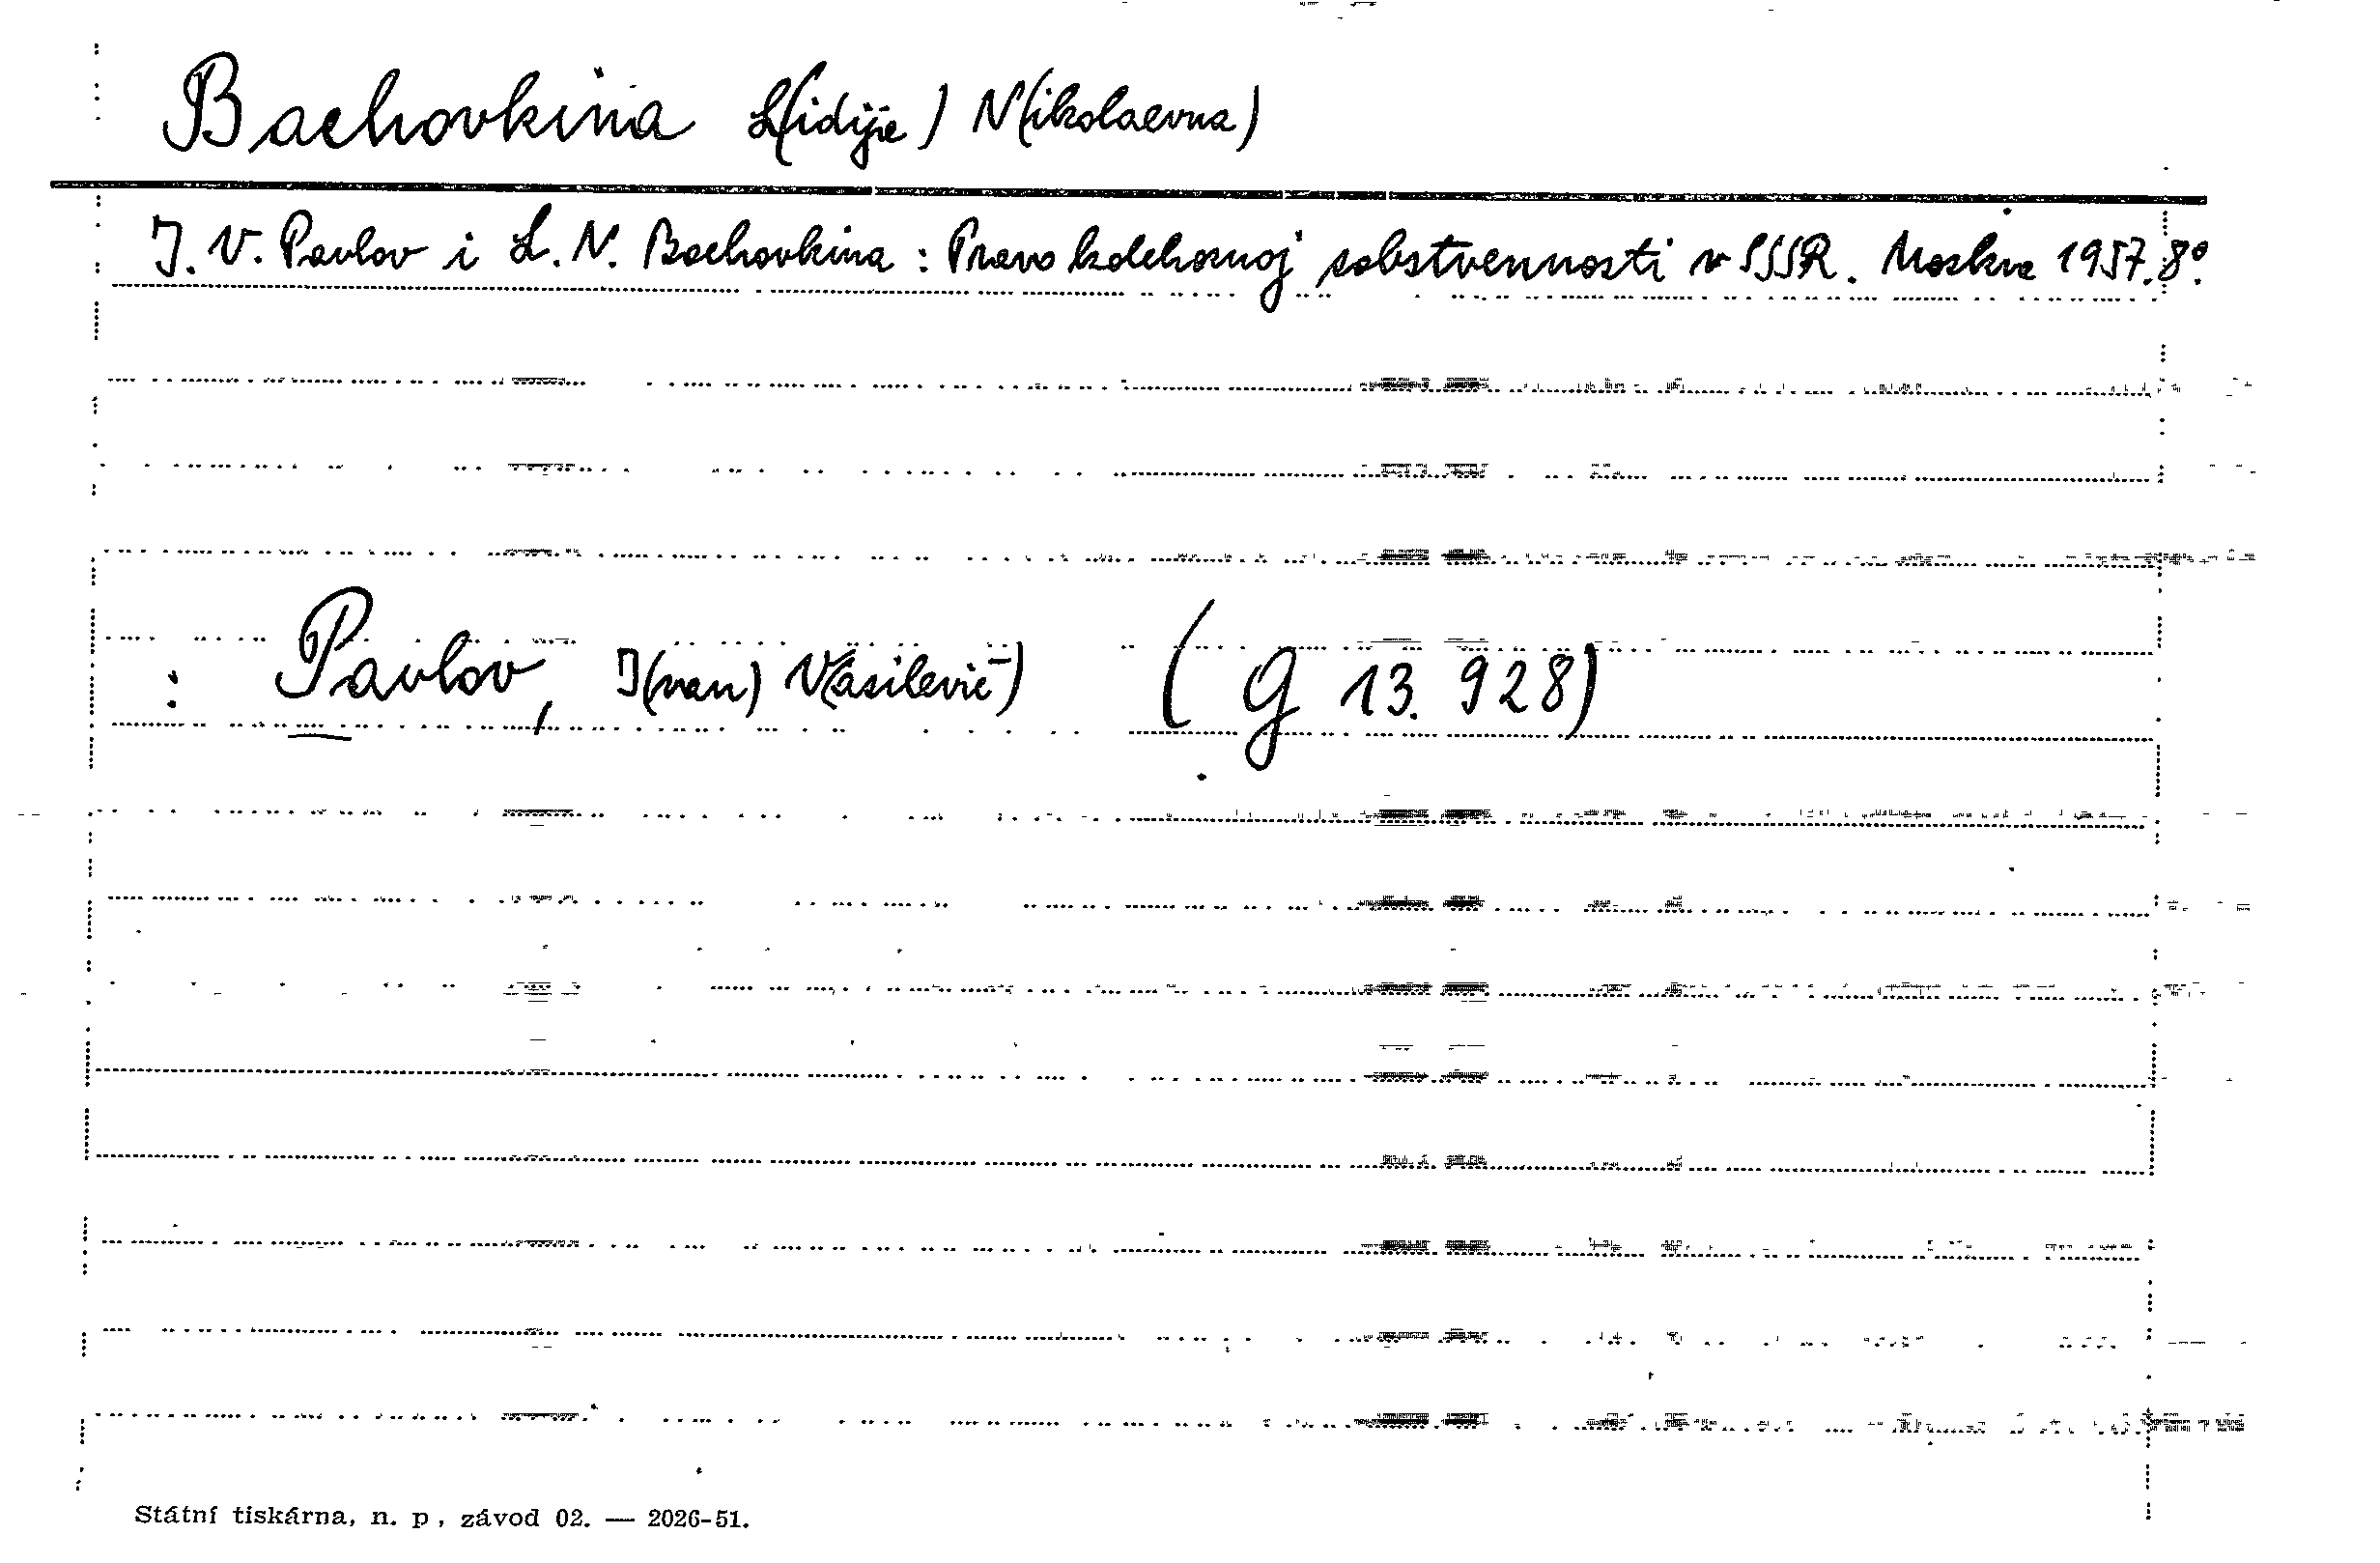 Bachovkina L(idija) N(ikolaevna)
I. V. Pavlov i L. N. Bachovkina : Pravo kolchoznoj sobstvennosti v SSSR. Moskva 1957. 8°.
: Pavlov, I(van) V(asilevič) (G 13.928)
Státní tiskárna, n. p., závod 02. — 2026-51.